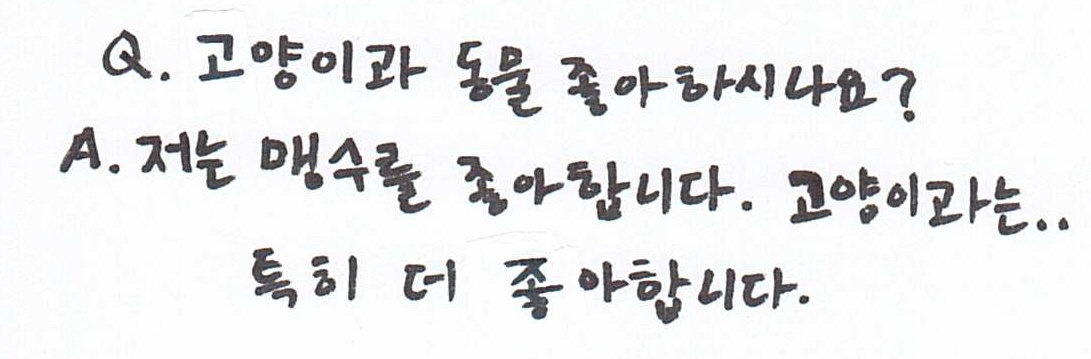 Q. 고양이과 동물 좋아하시나요?
A. 저는 맹수를 좋아합니다. 고양이과는..
특히 더 좋아합니다.